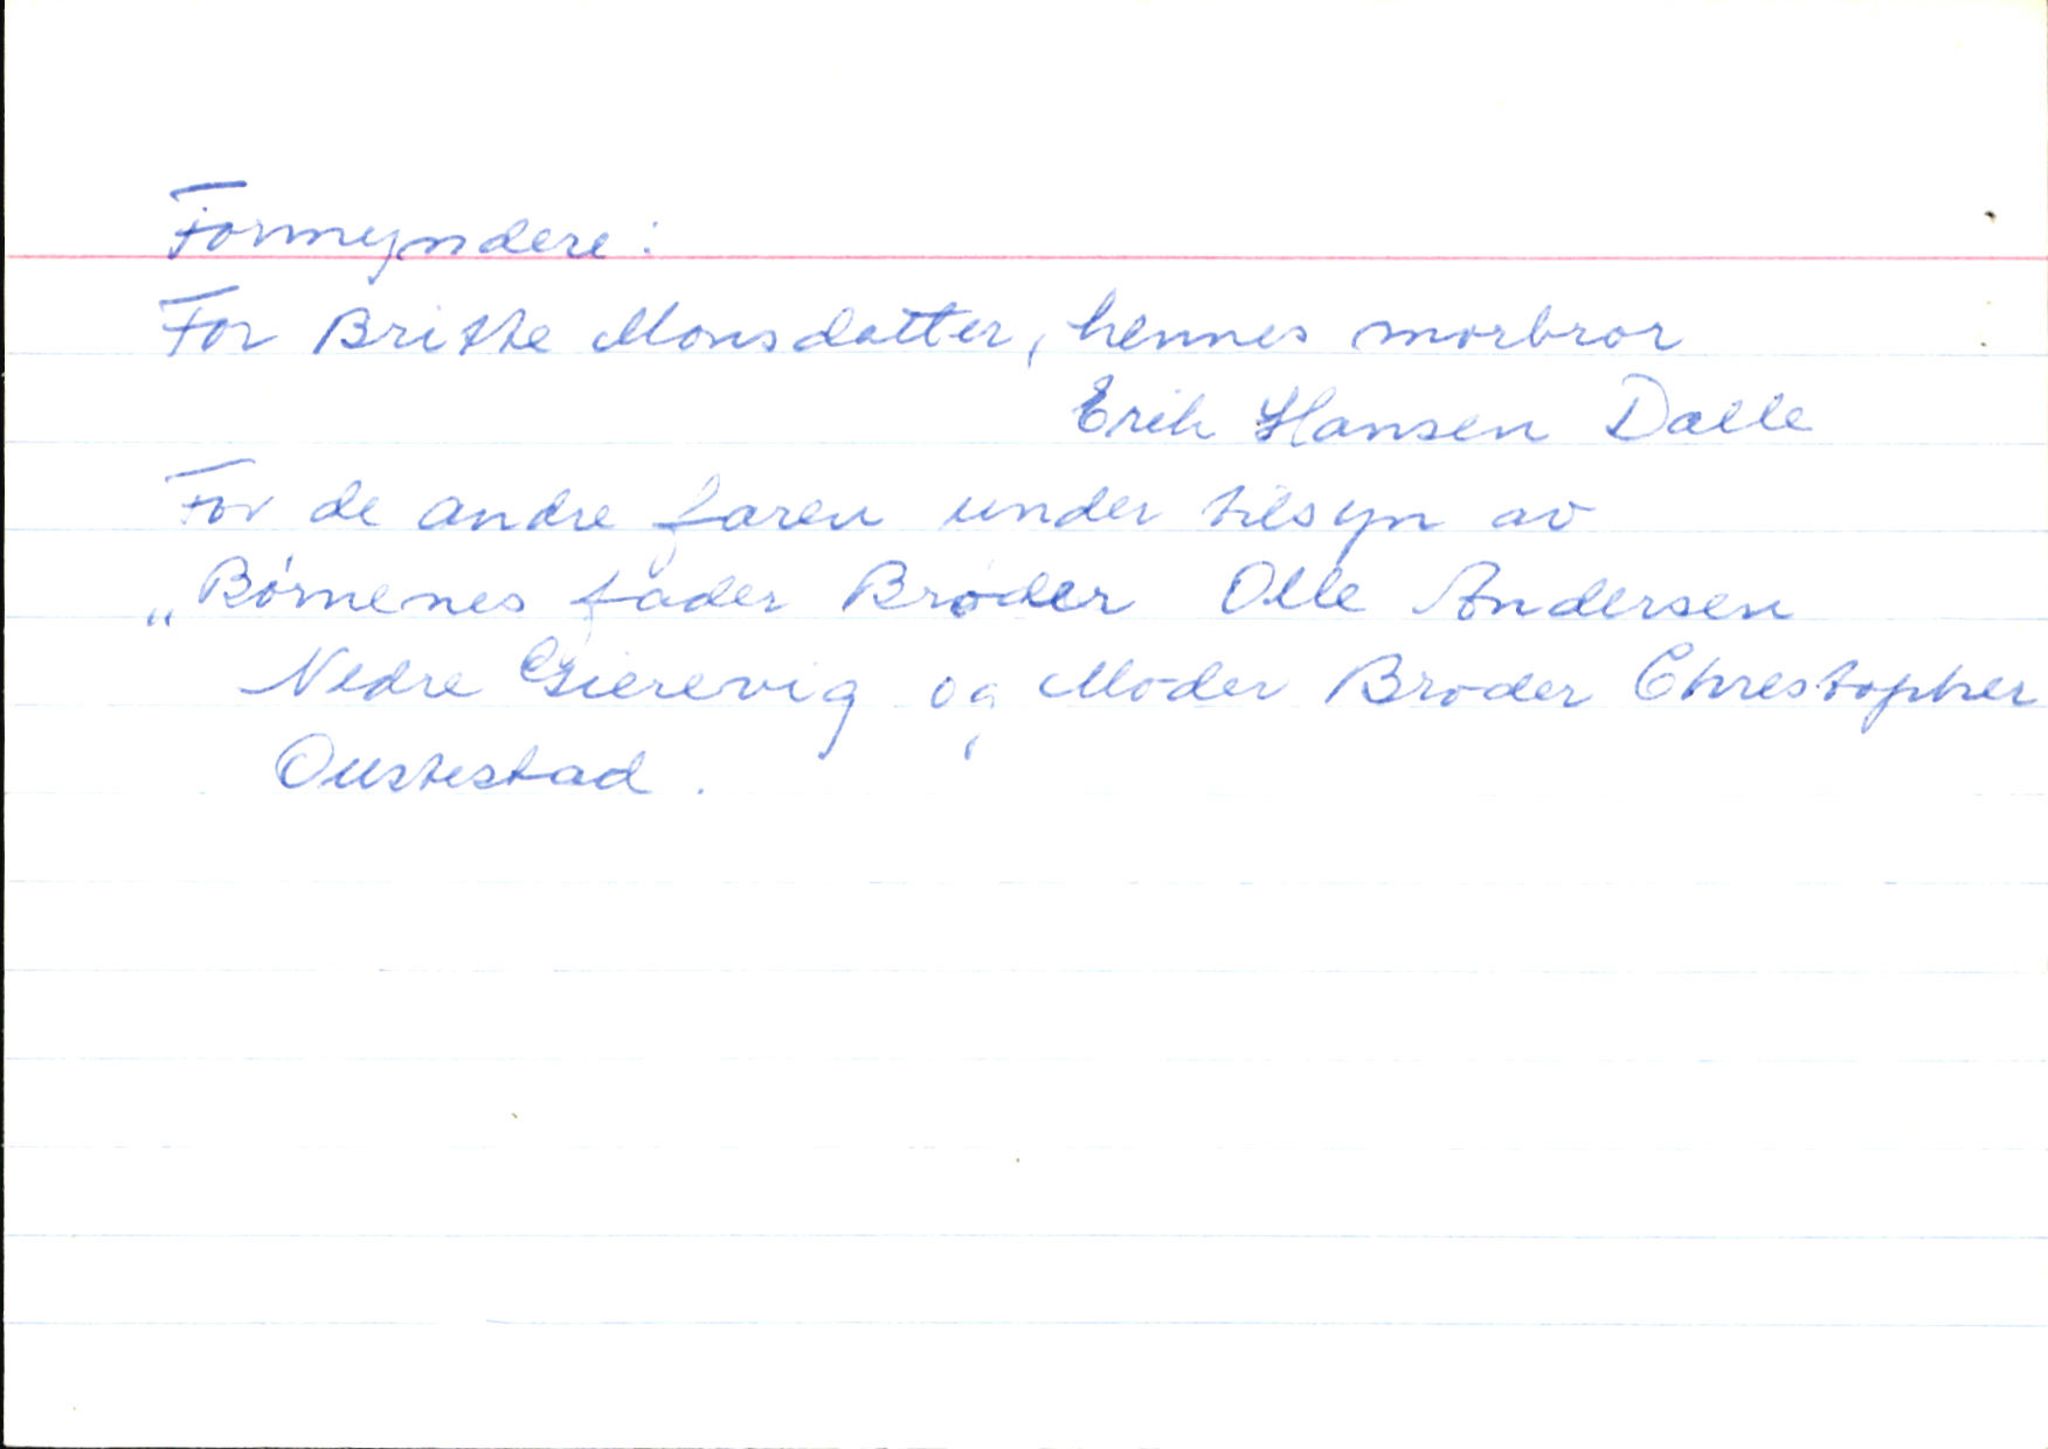 Formyndere:
For Britte Monsdatter, hennes morbror
Erik Hansen Dalle
For de andre faren under tilsyn av
„Børnenes fader Broder Olle Andersen
Nedre Gierevig og Moder Broder Chrestopher
Oustestad.